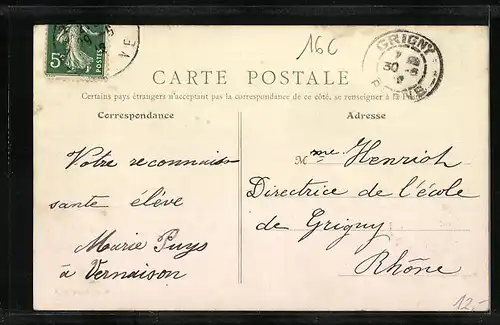 16C
5c
GRIGNY
30 -8
RHÔNE
CARTE POSTALE
Certains pays étrangers n'acceptant pas la correspondance de ce côté, se renseigner à la Poste
Correspondance
Adresse
Votre reconnais
sante élève
Marie Puys
à Vernaison
Mme Henrioh
Directrice de l'école
de Grigny
Rhône
12.-